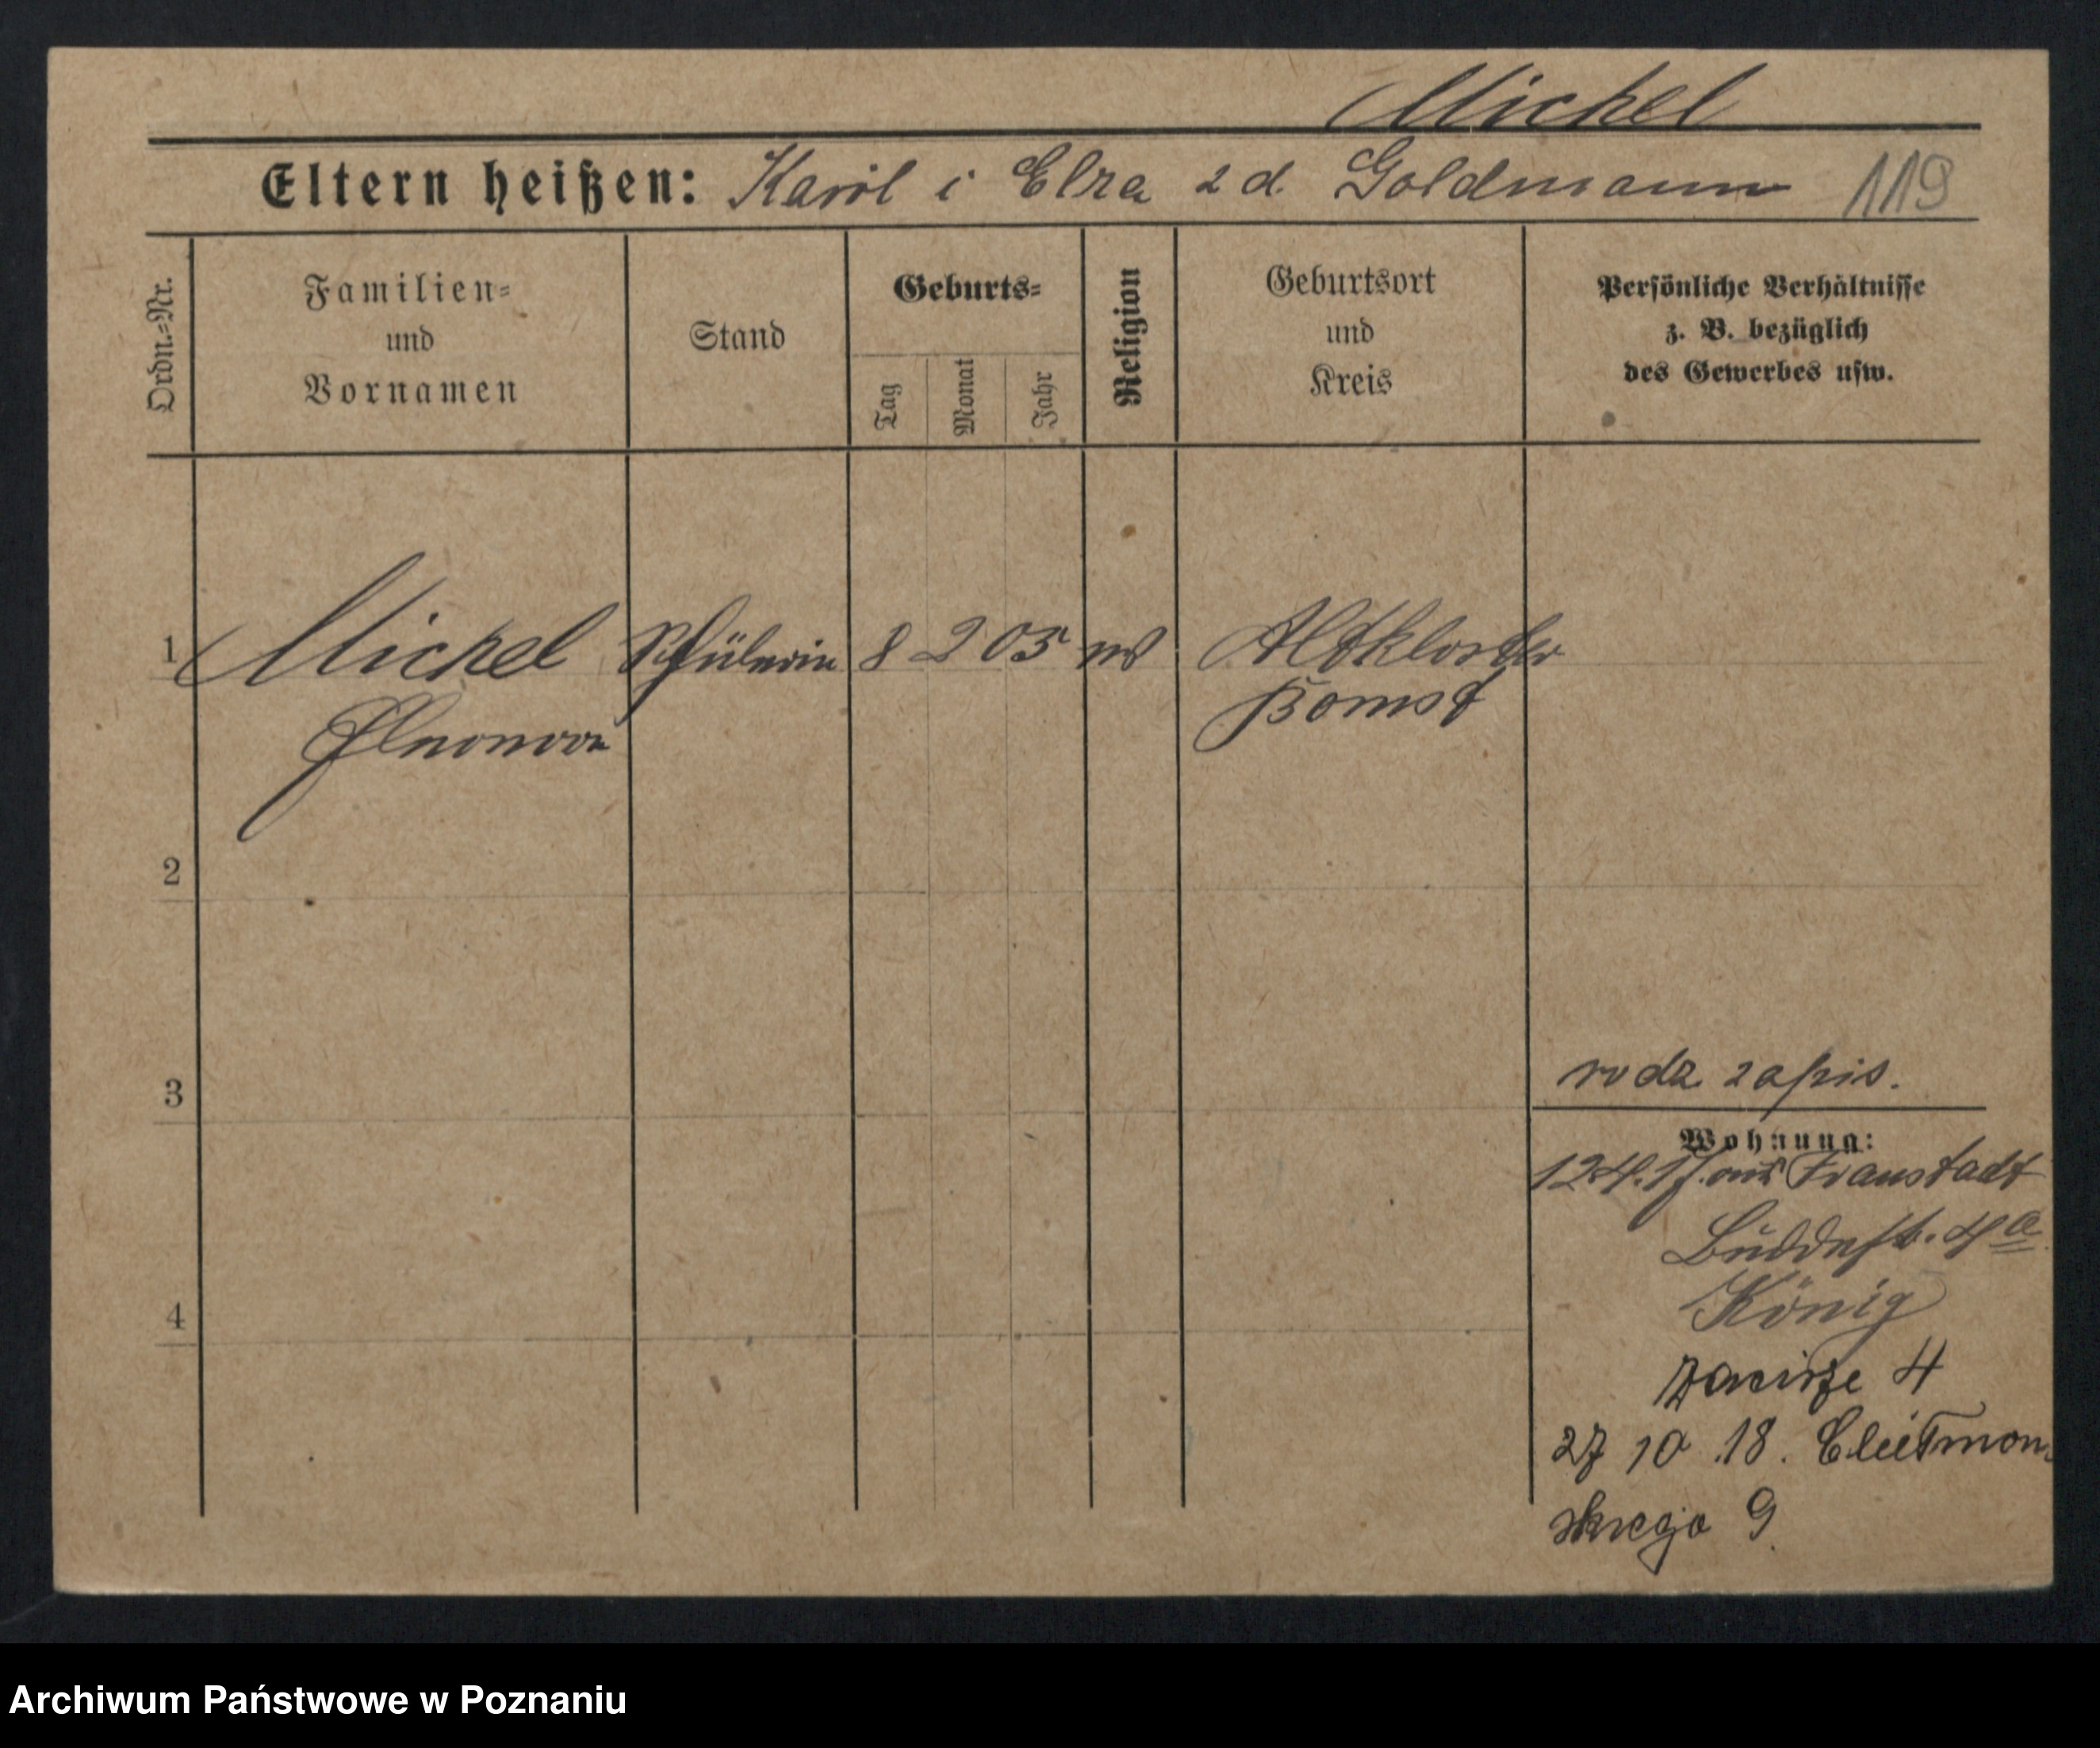 Michel
Eltern heißen: Karol i Elza z d. Goldmann 119
Ordn.-Nr.
Familien- und Vornamen
Stand
Geburts-
Tag
Monat
Jahr
Religion
Geburtsort und Kreis
Persönliche Verhältnisse
z. B. bezüglich
des Gewerbes usw.
1 Michel Schülerin 8 2 05 Altkloster
Eleonore Bomst
2
3
rodz zapis.
Wohnung:
12.4.17. aus Fraustadt
Buddestr. 4a
König
4
Zacisze 4
27 10 18.
skiego 9.
Archiwum Państwowe w Poznaniu